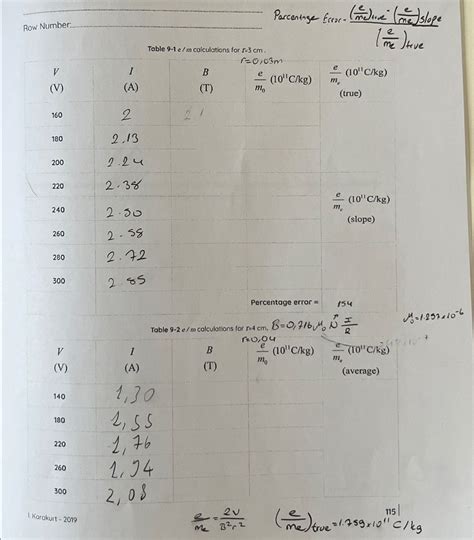 Parcentage Error = (e/me)true - (e/me)slope / (e/me)true
Row Number:
Table 9-1 e / m calculations for r=3 cm .
r=0,03m
V (V) I (A) B (T) e/m₀ (10¹¹C/kg) e/mₑ (10¹¹C/kg) (true)
160 2
180 2.13
200 2.24
220 2.38
e/mₑ (10¹¹C/kg) (slope)
240 2.50
260 2.58
280 2.72
300 2.85
Percentage error =
154
Table 9-2 e / m calculations for r=4 cm, B=0,716 μ₀ N I/R
μ₀=1.257x10⁻⁶
r=0,04
V (V) I (A) B (T) e/m₀ (10¹¹C/kg) e/mₑ (10¹¹C/kg) (average)
140 1,30
180 1,55
220 1,76
260 1,94
300 2,08
I. Karakurt - 2019
e/me = 2V/B²r²
(e/me)true = 1.759x10¹¹ C/kg
115